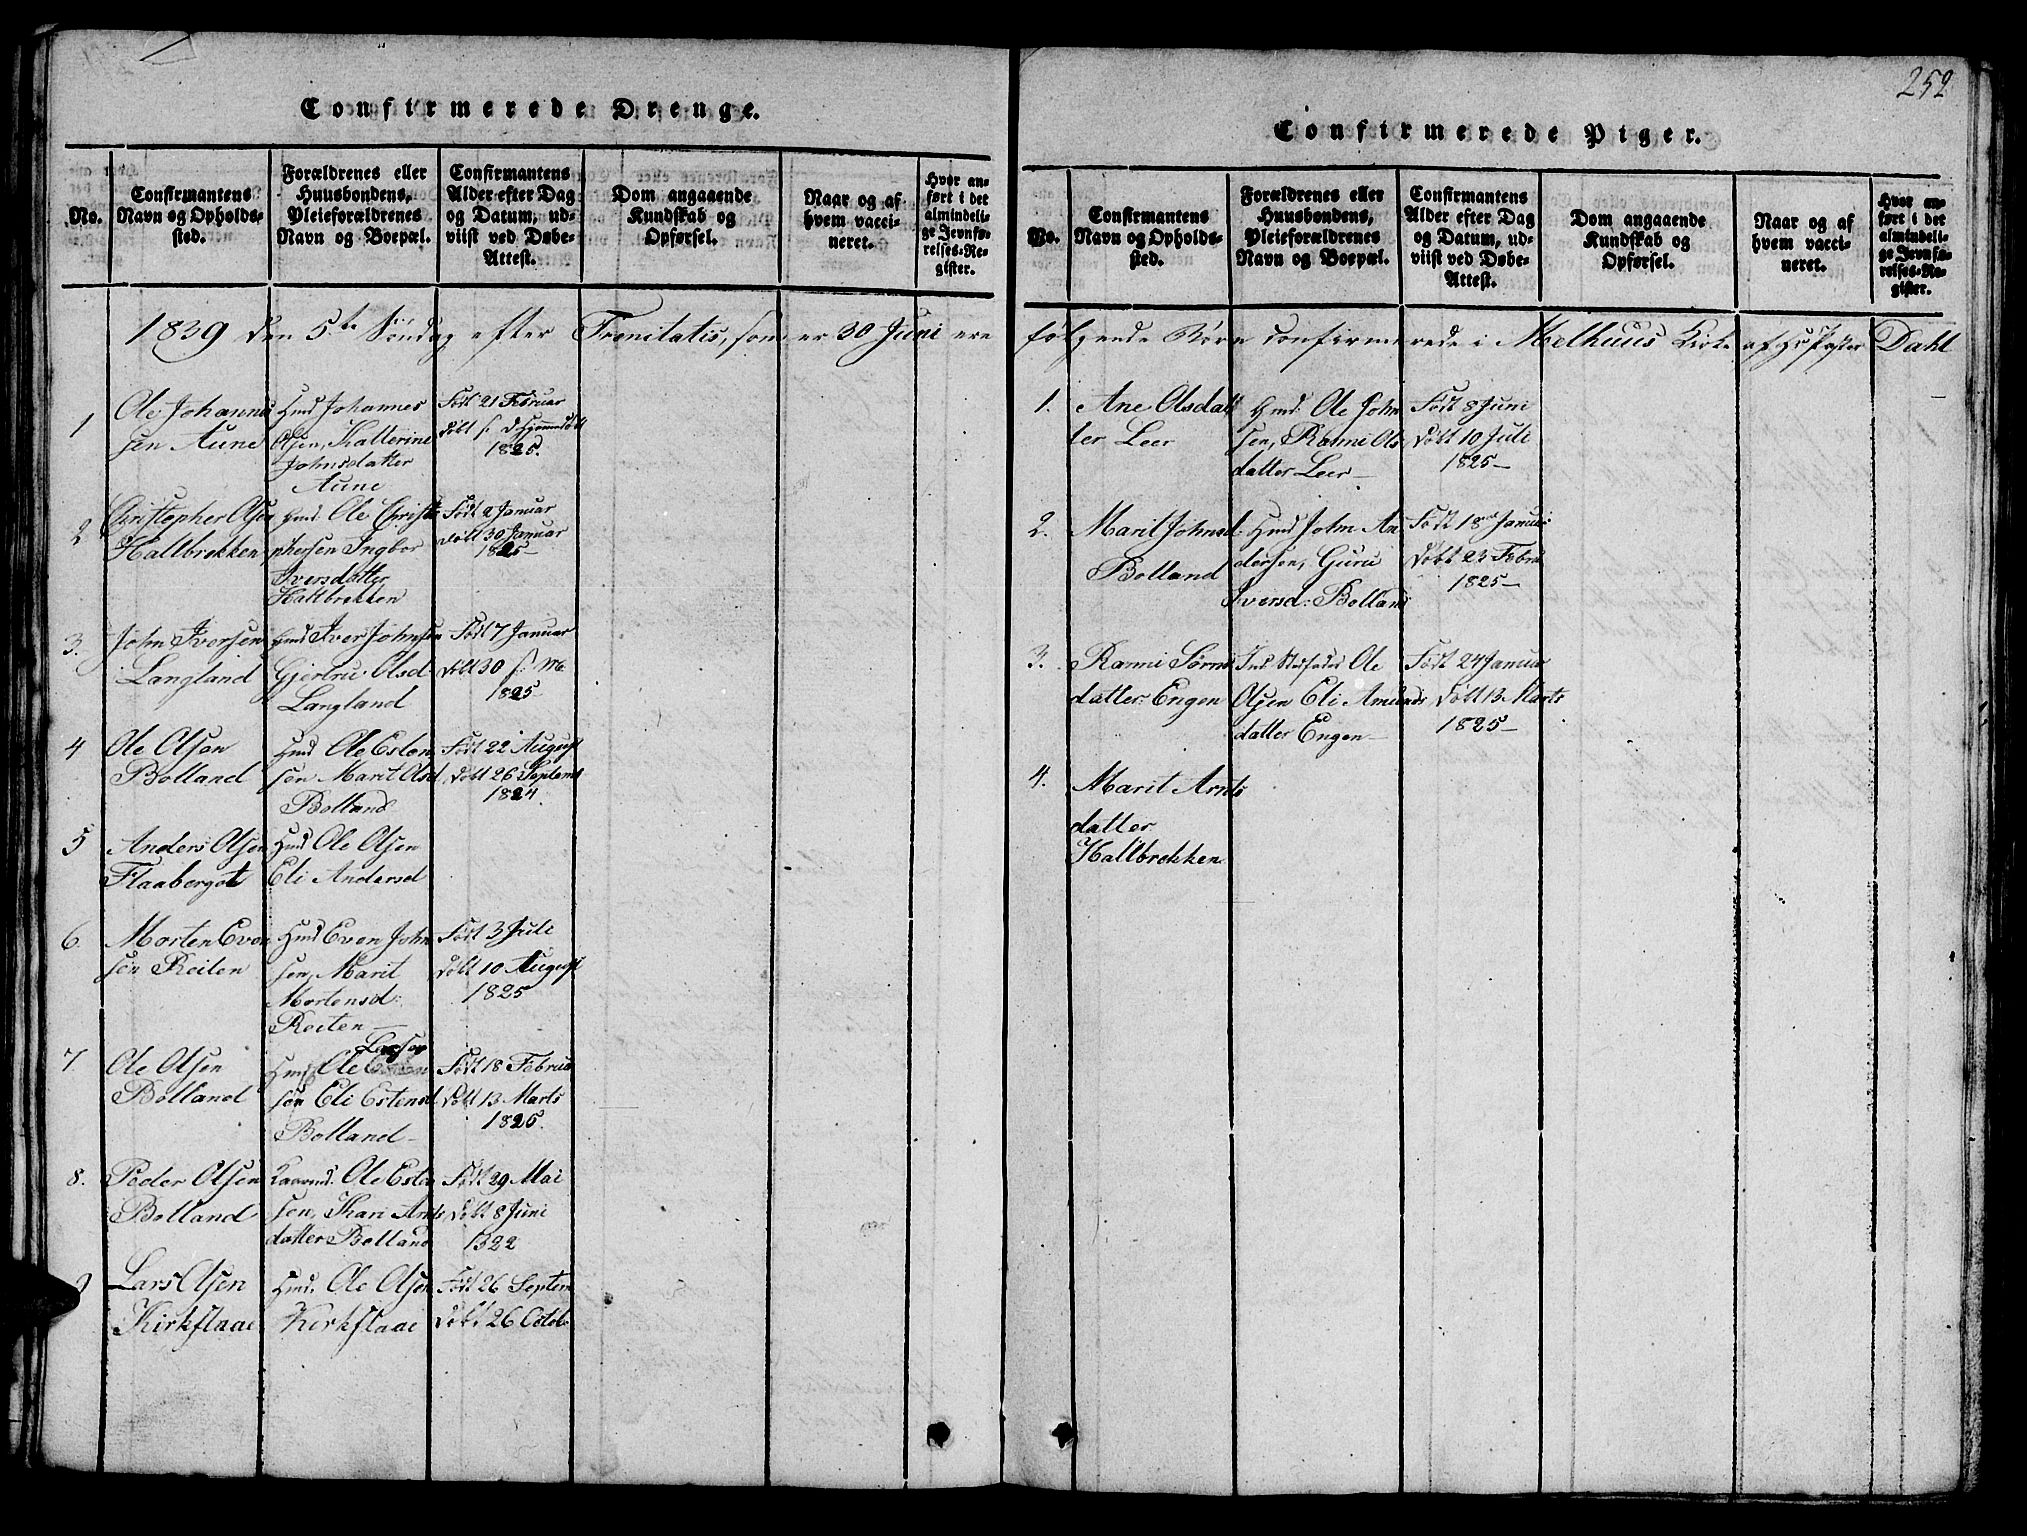 252
Confirmerede Drenge.
No.
Confirmantens
Navn og Opholds-
sted.
Forældrenes eller
Huusbondens,
Pleieforældrenes
Navn og Boepæl.
Confirmantens
Alder efter Dag
og Datum, ud-
viist ved Døbe-
Attest.
Dom angaaende
Kundskab og
Opførsel.
Naar og af
hvem vacci-
neret.
Hvor an-
ført i det
almindeli-
ge Jevnfø-
relses-Re-
gister.
1839 den 5te Søndag efter Trenitatis, som er 30 Juni ere
1
Ole Johannes
sen Aune
Hmd Johannes
Olsen, Katterine
Johnsdatter
Aune
Født 21 Februar
døbt
1825.
2
Christopher Olsen
Hallbrekken
Hmd. Ole Christo
phersen Ingbor
Iversdatter
Hallbrekken
Født 2 Januar
døbt 30 Januar
1825-
3.
John Iversen
Langland
Hmd Iver Johnsen
Gjertru Olsd
Langland
Født 7 Januar
døbt 30 s. M
1825-
4
Ole Olsen
Bolland
Hmd Ole Esten
sen Marit Olsd
Bolland
Født 22 August
døbt 26 Septemb
1824.
5
Anders Olsen
Flaaberget
Hmd Ole Olsen
Eli Andersd
6.
Morten Even
sen Reiten
Hmd Even John
sen, Marit
Mortensd:
Reiten -
Født 3 Juli
døbt 10 August
1825
7.
Ole Olsen
Bolland
Larsen
Hmd Ole
sen Eli Estensd
Bolland-
Født 18 Februa
døbt 13 Marts
1825.
8.
Peder Olsen
Bolland
Ole Esten
sen, Kari Arnts
datter Bolland
Født 29 Mai
døbt 8 Juni
1822
9
Lars Olsen
Kirkflaae
Hmd. Ole Olsen
Kirkflaae
Født 26 Septem
døbt 26 Octob
Confirmerede Piger.
No.
Confirmantens
Navn og Opholds-
sted.
Forældrenes eller
Huusbondens,
Pleieforældrenes
Navn og Boepæl.
Confirmantens
Alder efter Dag
og Datum, ud-
viist ved Døbe-
Attest.
Dom angaaende
Kundskab og
Opførsel.
Naar og af
hvem vacci-
neret.
Hvor an-
ført i det
almindeli-
ge Jevnfø-
relses-Re-
gister.
følgende Børn confirmerede i Melhuus Kirke af Hr Pastor Dahl
1.
Ane Olsdat
ter Leer
Hmd. Ole John
sen, Ranni Ols
datter Leer-
Født 8 Juni
døbt 10 Juli
1825-
2.
Marit Johnsd.
Bolland
Hmd John An
dersen, Guru
Iversd: Bolland
Født 18 Januar
døbt 23 Febru
1825-
3.
Ranni Sørens
datter: Engen
Ole
Olsen Eli Amunds
datter Engen-
Født 24 Januar
døbt 13 Marts
1825-
4.
Marit Arnts
datter
Hallbrekken